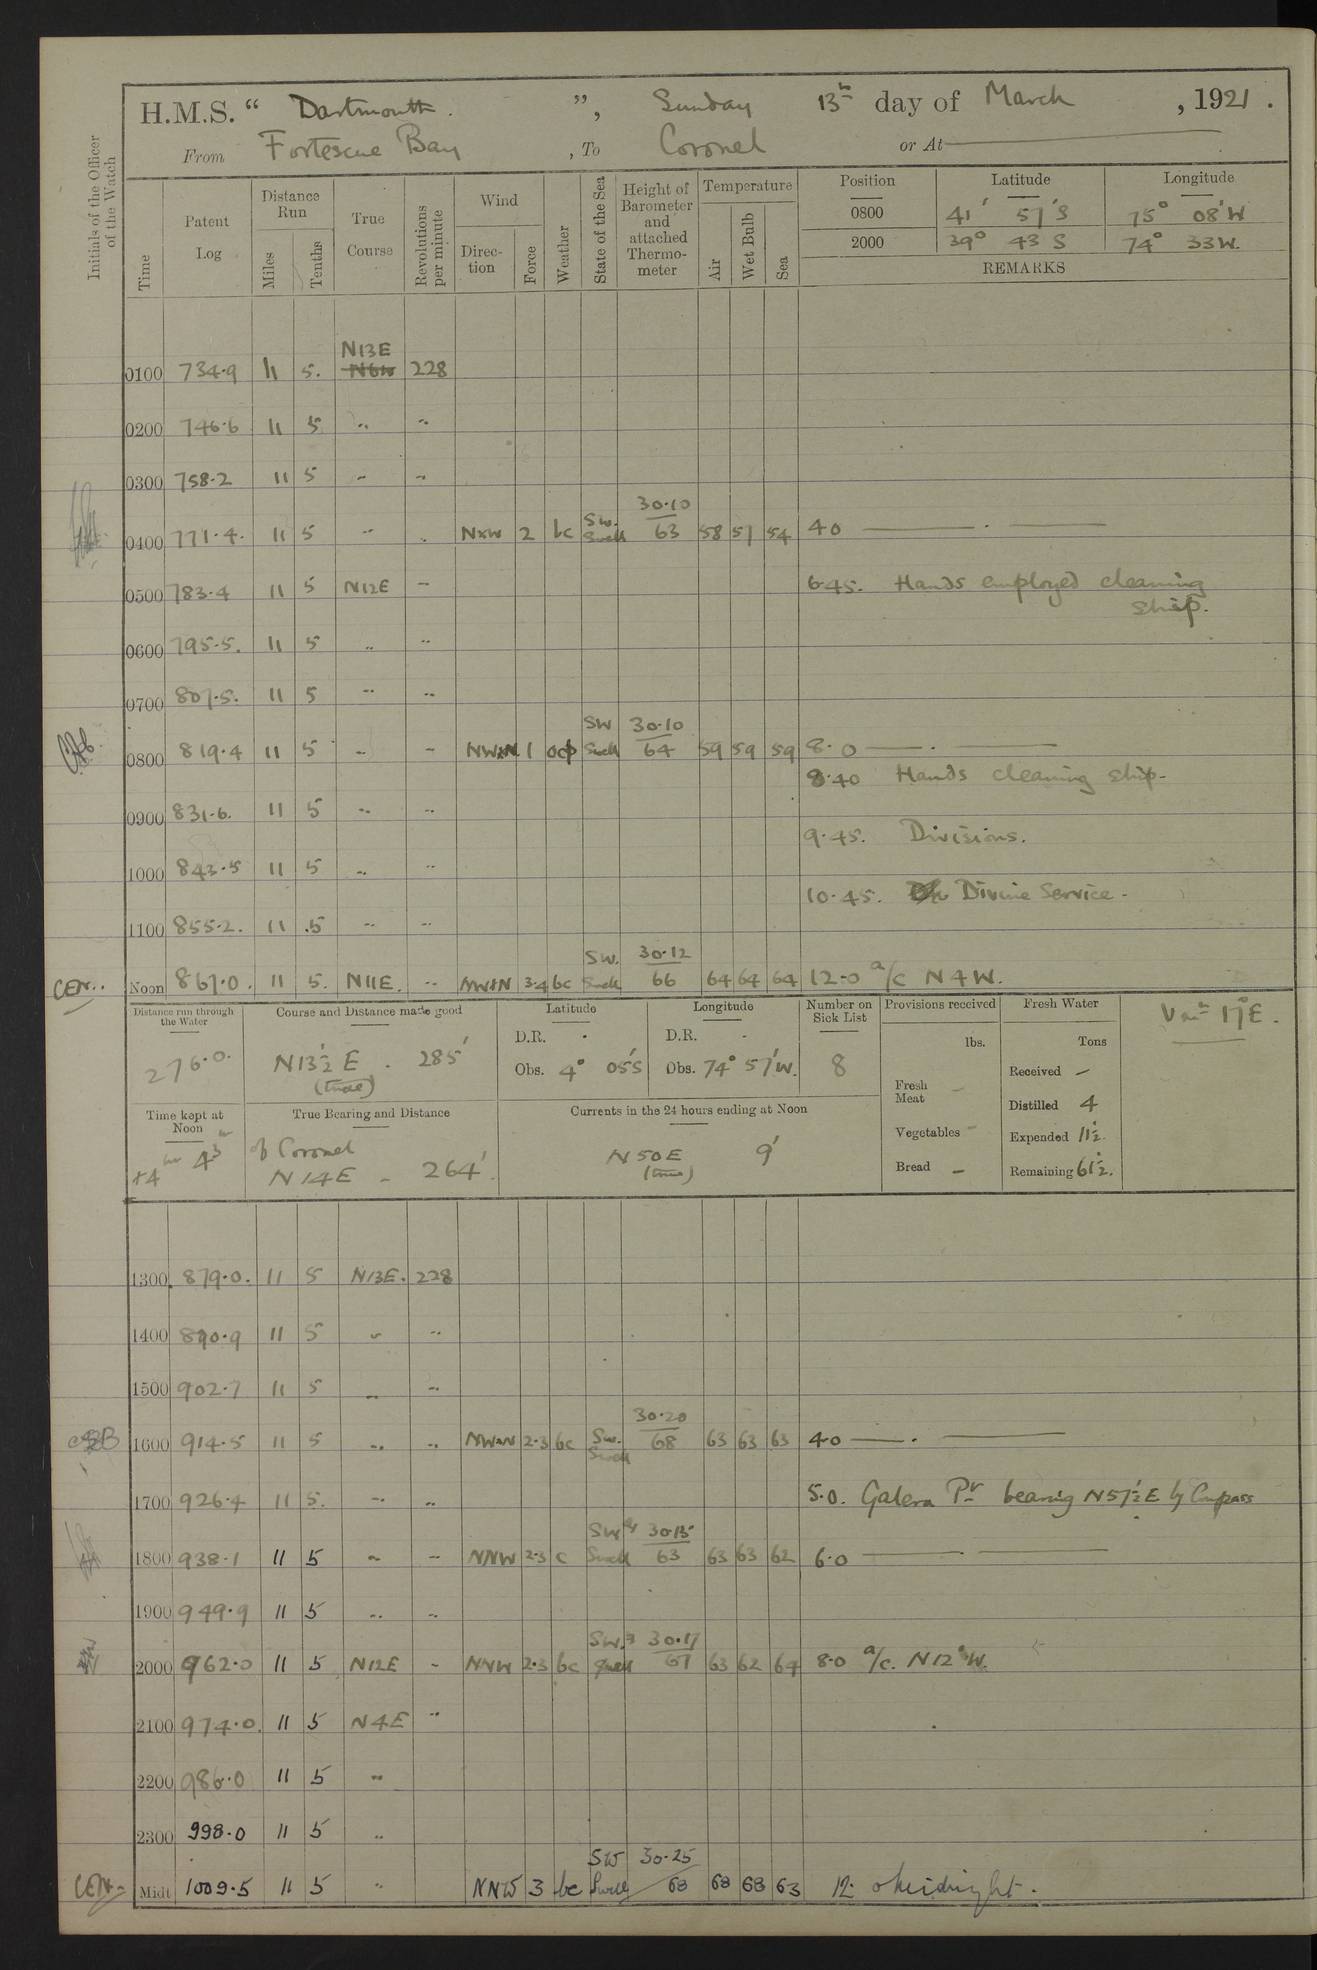 H.M.S. “ Dartmouth. ”, Sunday 13th day of March , 1921 .
From Fortescue Bay , To Coronel or At
Initials of the Officer of the Watch
Time
Patent Log
Distance Run
Miles
Tenths
True Course
Revolutions per minute
Wind
Direction
Force
Weather
State of the Sea
Height of Barometer and attached Thermometer
Temperature
Air
Wet Bulb
Sea
Position Latitude Longitude
0800 41' 57' S 75° 08' W
2000 39° 43 S 74° 33 W.
REMARKS
N13E
0100 734.9 11 5. 228
0200 746.6 11 5 " "
0300 758.2 11 5 " "
SW. 30.10
0400 771.4. 11 5 " " NxW 2 bc Swell 63 58 57 54 4 0
0500 783.4 11 5 N12E " 6.45. Hands employed cleaning
ship.
0600 795.5. 11 5 " "
0700 807.5. 11 5 " "
SW 30.10
0800 819.4 11 5 " " NWxN 1 ocp Swell 64 59 59 59 8.0
8.40 Hands cleaning ship-
0900 831.6. 11 5 " "
9.45. Divisions.
1000 843.5 11 5 " "
10.45. Divine Service -
1100 855.2. 11 .5 " "
SW. 30.12
CEN.. Noon 867.0. 11 5. N11E. " NWxN 3.4 bc Swell 66 64 64 64 12.0 a/c N4W.
Distance run through the Water
276.0.
Course and Distance made good
N13½E . 285'
(true)
Latitude
D.R. -
Obs. 4° 05'S
Longitude
D.R. -
Obs. 74° 57'W.
Number on Sick List
8
Provisions received
lbs.
Fresh Meat -
Vegetables -
Bread -
Fresh Water
Tons
Received -
Distilled 4
Expended 11½.
Remaining 61½.
Varn 17°E.
Time kept at Noon
+4 hr 43 m
True Bearing and Distance
of Coronel
N14E - 264'.
Currents in the 24 hours ending at Noon
N50E 9'
(true)
1300. 879.0. 11 5 N13E. 228
1400 890.9 11 5 " "
1500 902.7 11 5 " "
30.20
1600 914.5 11 5 " " NWxN 2.3 bc Sw. 68 63 63 63 4.0
Swell
1700 926.4 11 5. " " 5.0. Galera Pt bearing N57½E by Compass
SW'ly 30.15
1800 938.1 11 5 " " NNW 2.3 c Swell 63 63 63 62 6.0
1900 949.9 11 5 " "
SW. 30.17
2000 962.0 11 5 N12E " NNW 2.3 bc Swell 67 63 62 64 8.0 a/c. N12°W.
2100 974.0. 11 5 N4E "
2200 986.0 11 5 "
2300 998.0 11 5 "
SW 30.25
CEN- Midt 1009.5 11 5 " NNW 3 bc Swell 68 68 68 63 12. o Midnight.